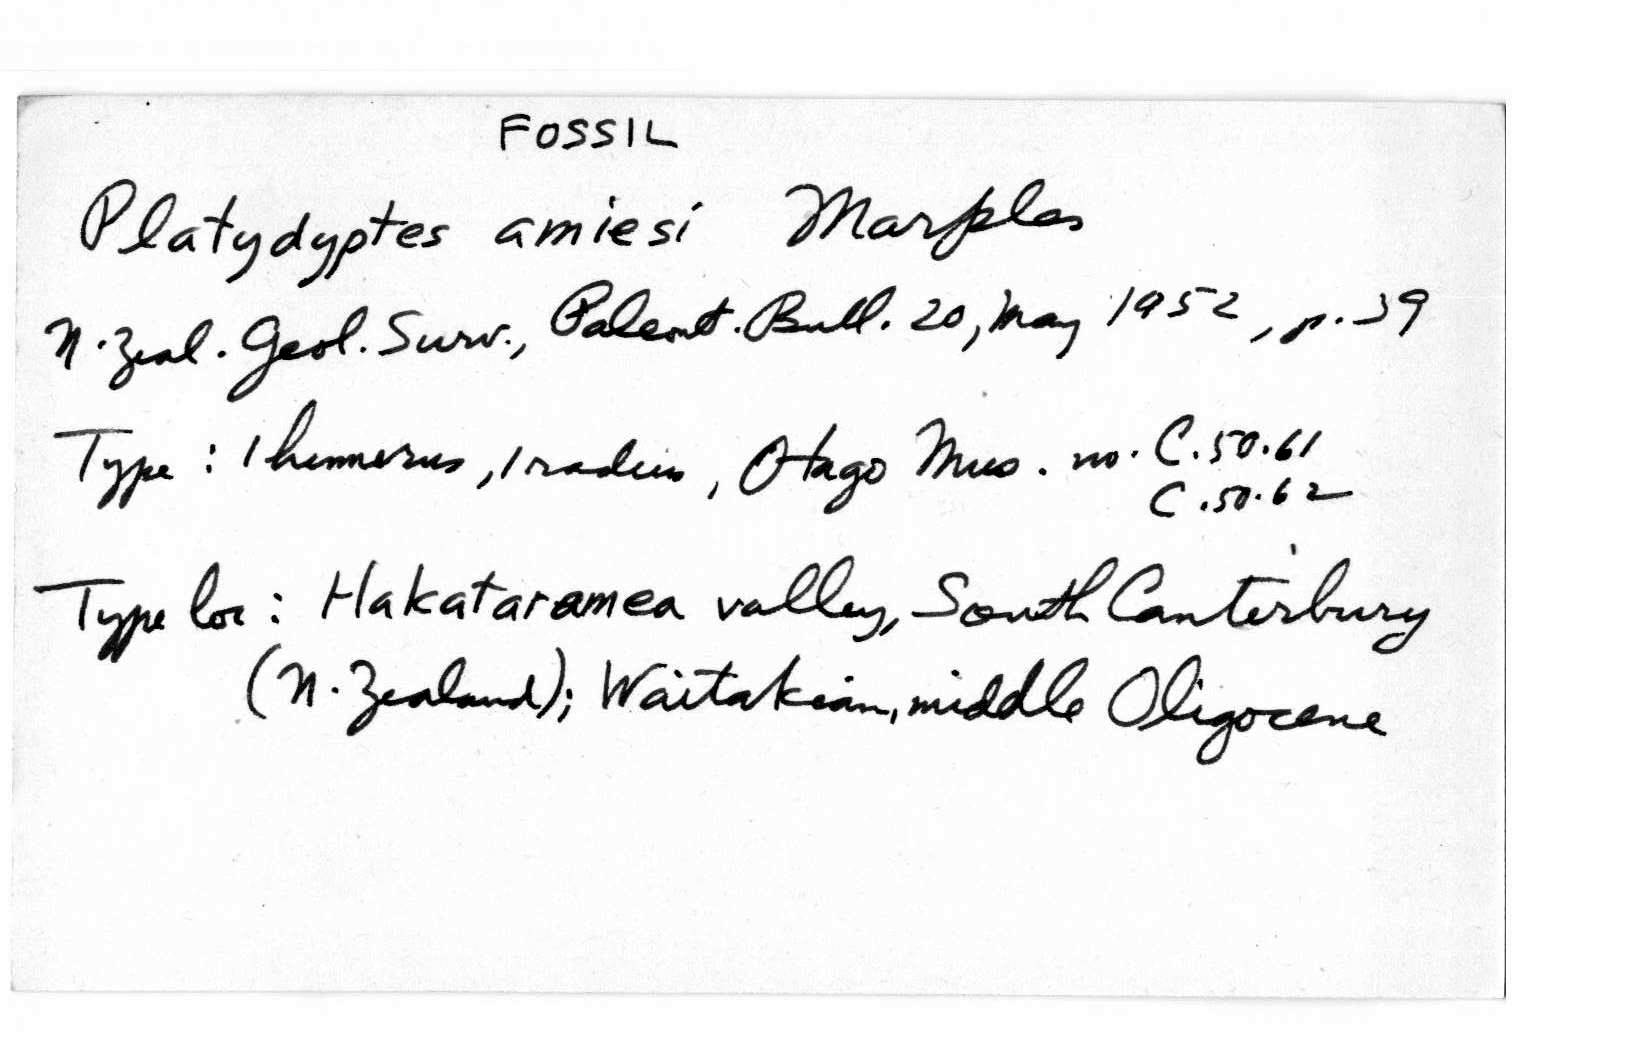 FOSSIL
Platydyptes amiesi Marples
N. Zeal. Geol. Surv., Paleont. Bull. 20, May 1952, p. 39
Type: 1 hummerus, 1 radius, Otago Mus. no. C.50.61
C.50.62
Type loc: Hakataramea valley, South Canterbury
(N. Zealand); Waitakian, middle Oligocene